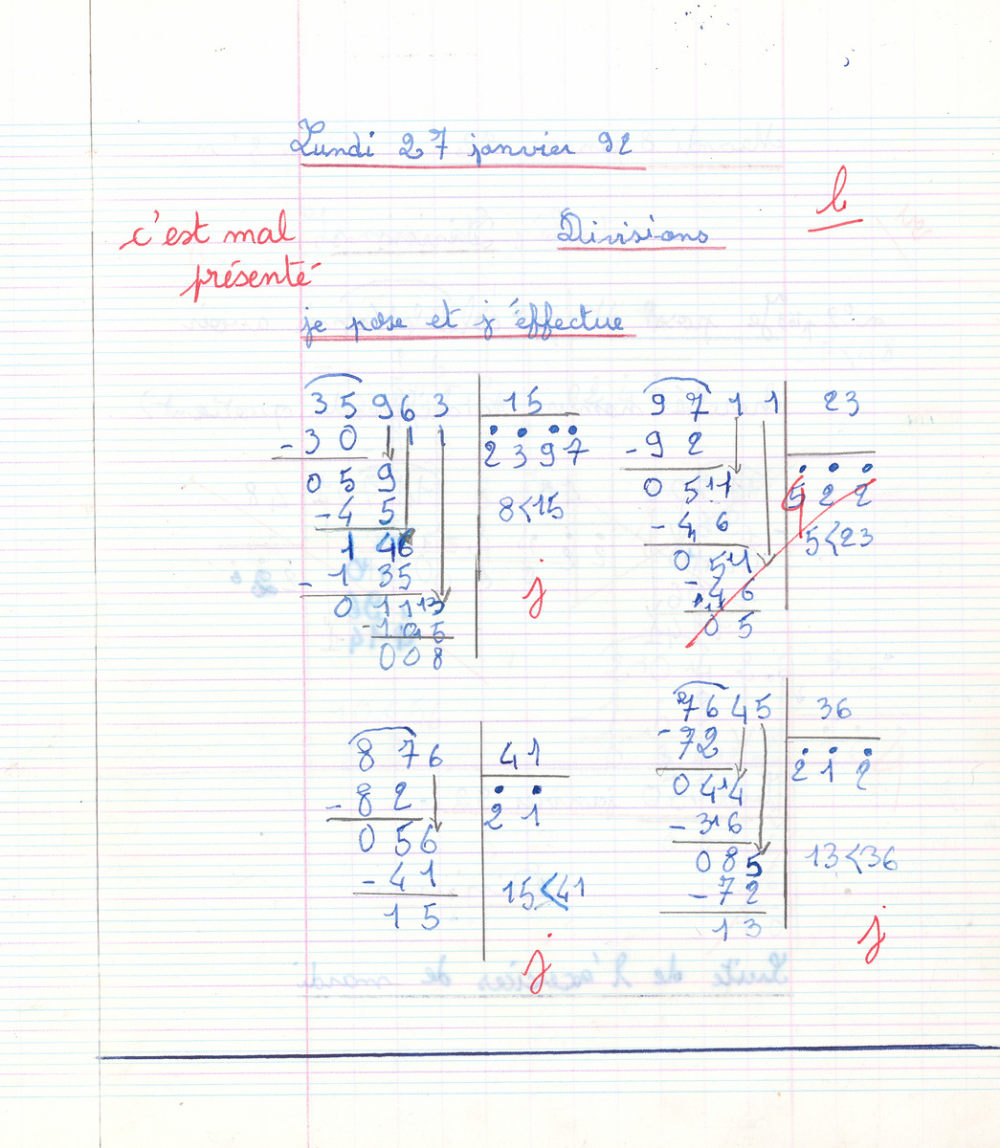 Lundi 27 janvier 92
b
c'est mal
présenté
Divisions
je pose et j'éffectue
35963 | 15
-30 2397
059 8<15
-45
146
-135
01113
-105
008
j
9711 | 23
-92 522
0511 5<23
-46
0511
-46
05
876 | 41
-82 21
056 15<41
-41
15
j
7645 | 36
-72 212
04414 13<36
-316
085
-72
13
j